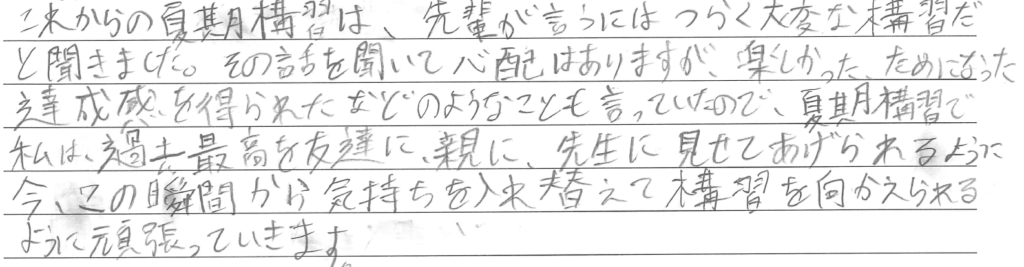 これからの夏期構習は、先輩が言うにはつらく大変な構習だ
と聞きました。その話を聞いて心配はありますが、楽しかった、ためになった
達成感を得られたなどのようなことも言っていたので、夏期構習で
私は、過去最高を友達に、親に、先生に見せてあげられるように
今、この瞬間から気持ちを入れ替えて構習を向かえられる
ように頑張っていきます。